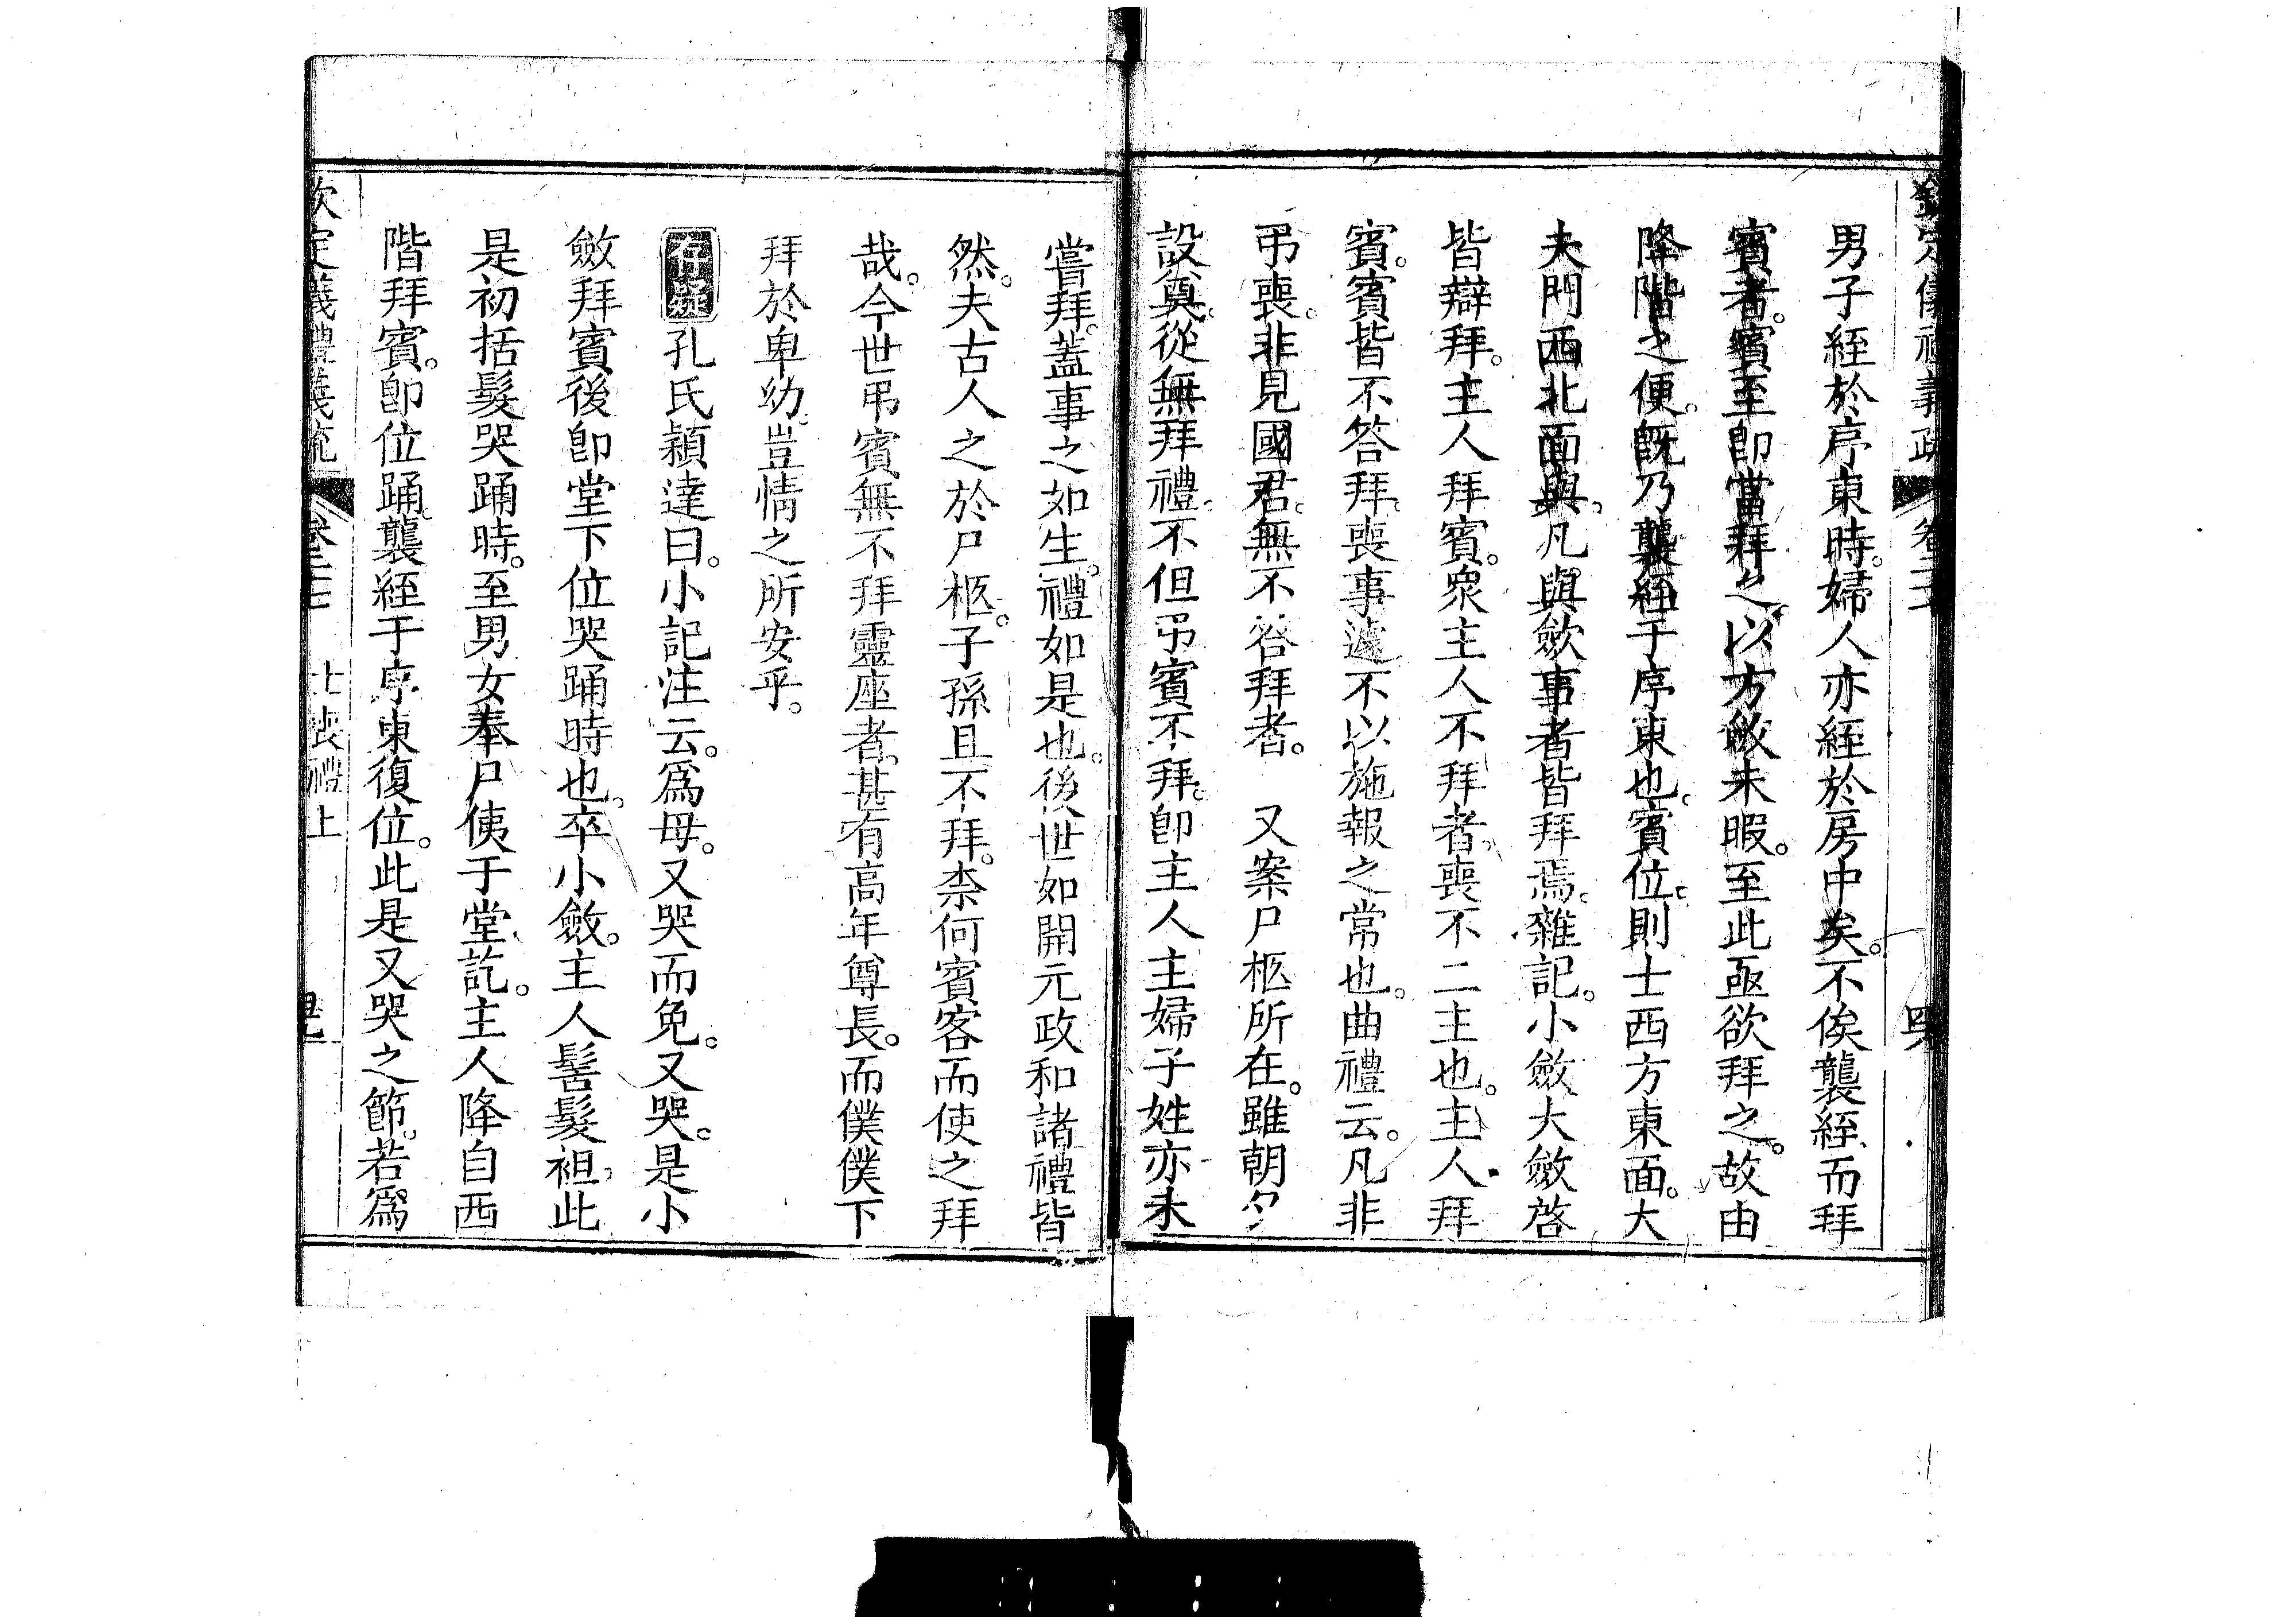 欽定儀禮義疏 卷二十
男子絰於序東時。婦人亦絰於房中矣。不俟襲絰而拜
賓者。賓至卽當拜之。以方斂未暇。至此亟欲拜之。故由
降階之便。旣乃襲絰于序東也。賓位。則士西方東面。大
夫門西北面與。凡與歛事者皆拜焉。雜記。小斂大斂啓
皆辯拜。主人拜賓。衆主人不拜者。喪不二主也。主人拜
賓。賓皆不答拜。喪事遽。不以施報之常也。曲禮云。凡非
弔喪。非見國君。無不答拜者。 又案尸柩所在。雖朝夕
設奠。從無拜禮。不但弔賓不拜。卽主人主婦子姓亦未
嘗拜。蓋事之如生。禮如是也。後世如開元政和諸禮皆
然。夫古人之於尸柩。子孫且不拜。柰何賓客而使之拜
哉。今世弔賓無不拜靈座者。甚有高年尊長。而僕僕下
拜於卑幼。豈情之所安乎。
存疑孔氏穎達曰。小記注云。爲母。又哭而免。又哭。是小
斂拜賓後卽堂下位哭踊時也。卒小斂。主人髺髮袒。此
是初括髮哭踊時。至男女奉尸侇于堂訖。主人降自西
階拜賓。卽位踊。襲絰于序東復位。此是又哭之節。若爲
欽定儀禮義疏 士喪禮上